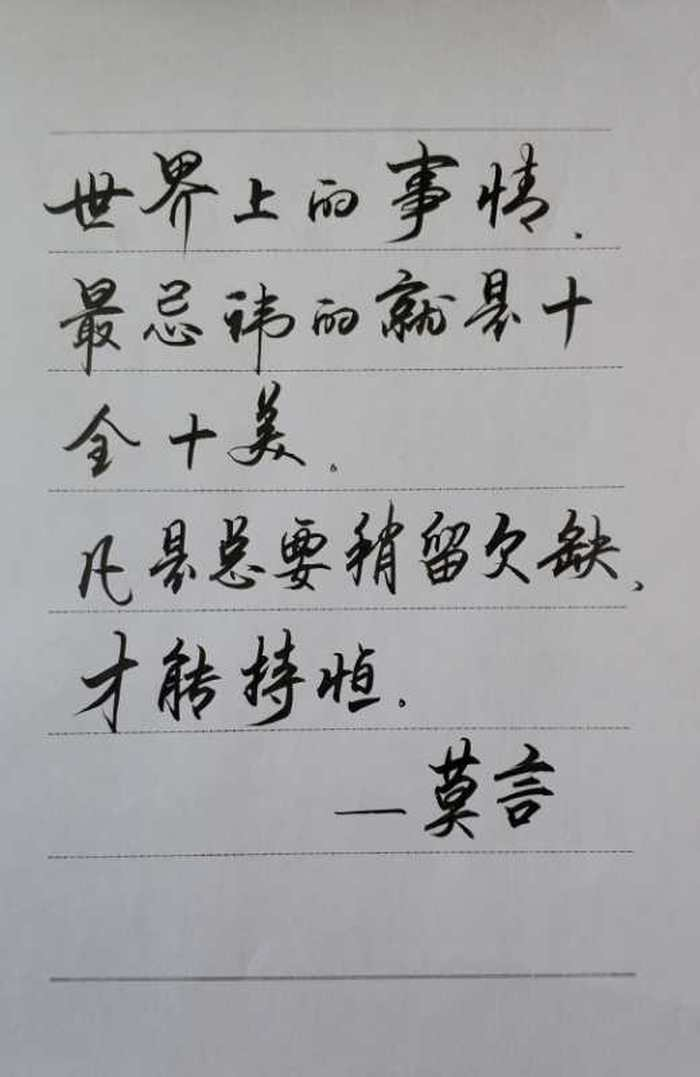 世界上的事情.
最忌讳的就是十
全十美.
凡是总要稍留欠缺、
才能持恒.
—莫言